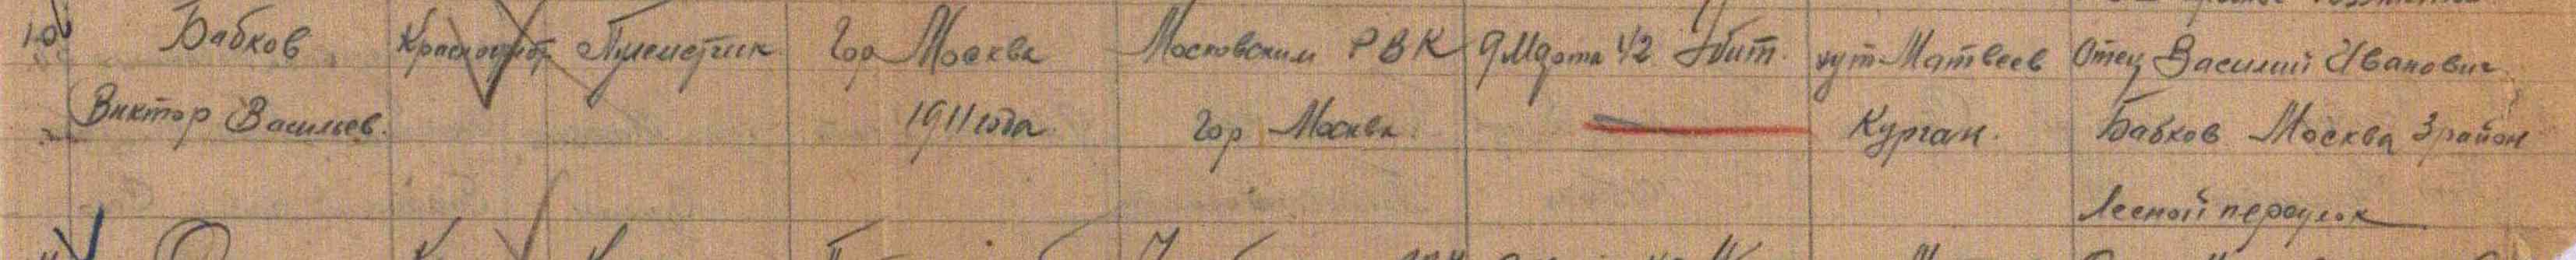 10 Бабков Красноарм. Пулеметчик Гор Москва Московским РВК 9 Марта 42 Убит. хут Матвеев Отец Василий Иванович
Виктор Васильев. 1911 года Гор Москва. Курган. Бабков Москва 3 район
Лесной переулок